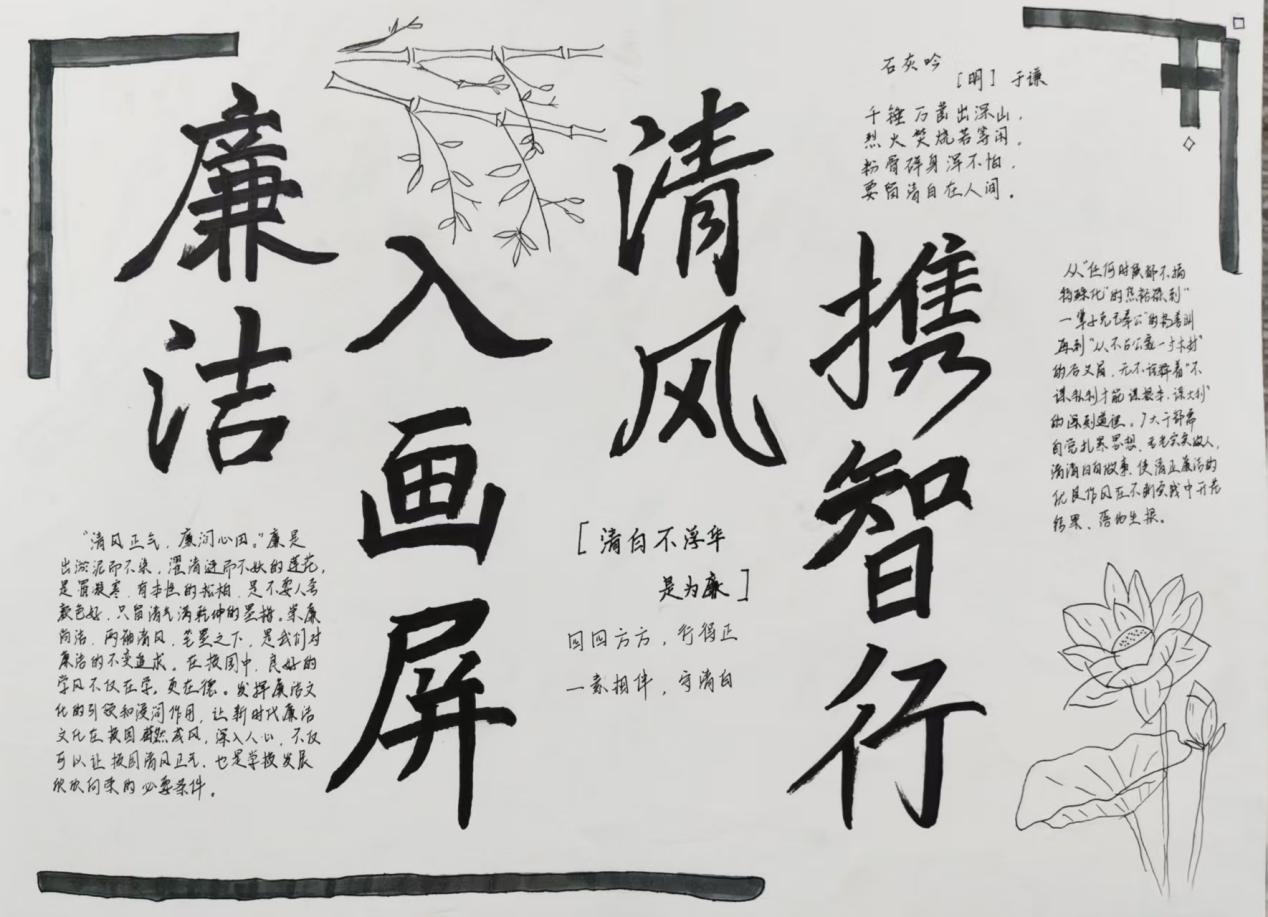 廉洁
入画屏
清风
携智行
石灰吟
[明] 于谦
千锤万凿出深山，
烈火焚烧若等闲，
粉骨碎身浑不怕，
要留清白在人间。
从“任何时候都不搞
特殊化”的焦裕禄到“
一辈子克己奉公”的杨善洲
再到“从不占公家一寸木材”
的
，无不诠释着“不
谋私利才能谋根本、谋大利”
的深刻道理。
自觉
，老老实实做人，
清清白白做事，使清正廉洁的
优良作风在不断实践中开花
结果、落地生根。
“清风正气，廉润心田。”廉是
出淤泥而不染，濯清涟而不妖的莲花，
是冒凝寒，有本性的松柏，是不要人夸
颜色好，只留清气满乾坤的墨梅。崇廉
尚洁，两袖清风，笔墨之下，是我们对
廉洁的不变追求。在校园中，良好的
学风不仅在学，更在德。发挥廉洁文
化的引领和浸润作用，让新时代廉洁
文化在校园蔚然成风，深入人心，不仅
可以让校园清风正气，也是学校发展
欣欣向荣的必要条件。
[清白不浮华
是为廉]
四四方方，行得正
一素相伴，守清白